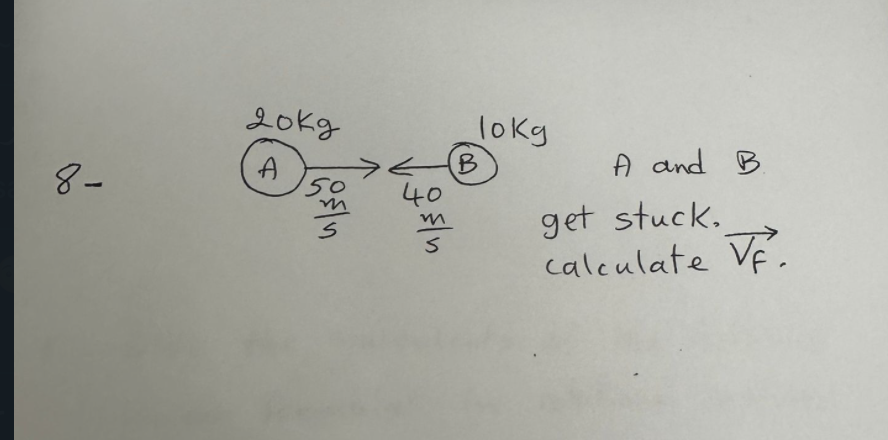 20Kg
10Kg
8-
A
B
50 m/s
40 m/s
A and B
get stuck.
calculate V⃗f.